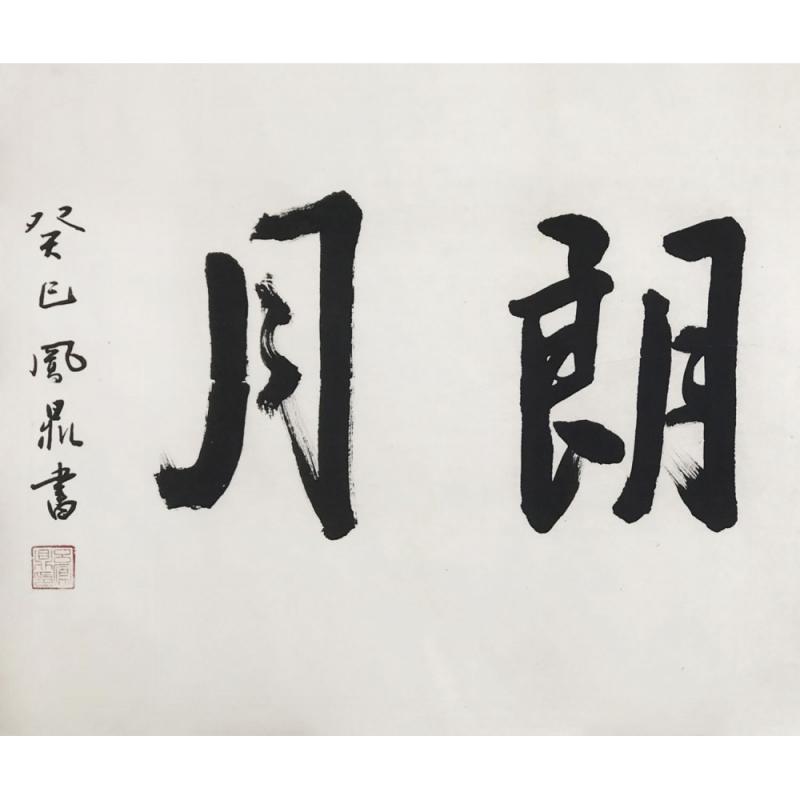 朗月
癸巳鳳鼎書